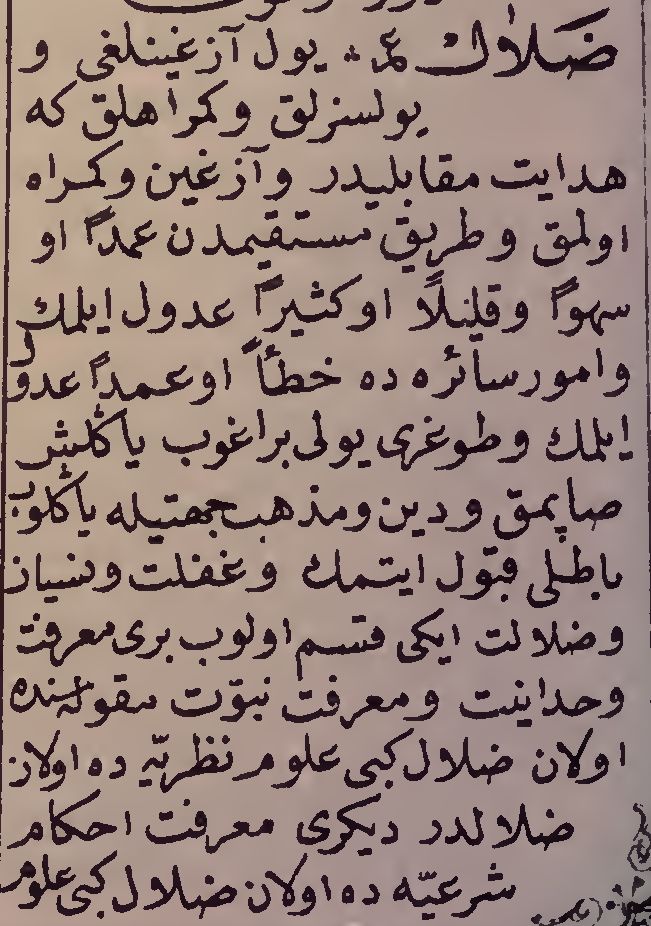 ضلالت عر: يول آزغينلغى و
يولسزلق وكمراهلق كه
هدايت مقابليدر وآزغين وكمراه
اولمق وطريق مستقيمدن عمداً او
سهواً وقليلاً او كثيراً عدول ايلمك
وامور سائره ده خطأً او عمداً عدول
ايلمك وطوغرى يولى براغوب ياكلش
صاپمق ودين ومذهب جهتيله ياكلوب
باطلى قبول ايتمك وغفلت ونسيان
وضلالت ايكى قسم اولوب برى معرفت
وحدانيت ومعرفت نبوّت مقوله سنده
اولان ضلال كبى علوم نظريّه ده اولان
ضلالدر ديكرى معرفت احكام
شرعيّه ده اولان ضلال كبى علوم